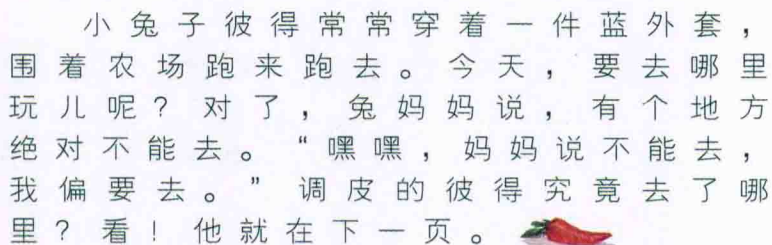 小兔子彼得常常穿着一件蓝外套，
围着农场跑来跑去。今天，要去哪里
玩儿呢？对了，兔妈妈说，有个地方
绝对不能去。“嘿嘿，妈妈说不能去，
我偏要去。”调皮的彼得究竟去了哪
里？看！他就在下一页。